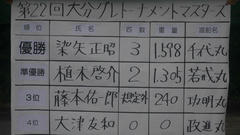 第22回大分グレトーナメントマスターズ
順位 氏名 匹数 重量 渡船名
優勝 染矢正昭 3 1,598 千代丸
準優勝 植木啓介 2 1,305 若戎丸
3位 藤本佑一郎 規定外 240 功明丸
4位 大津友和 0 0 政進丸